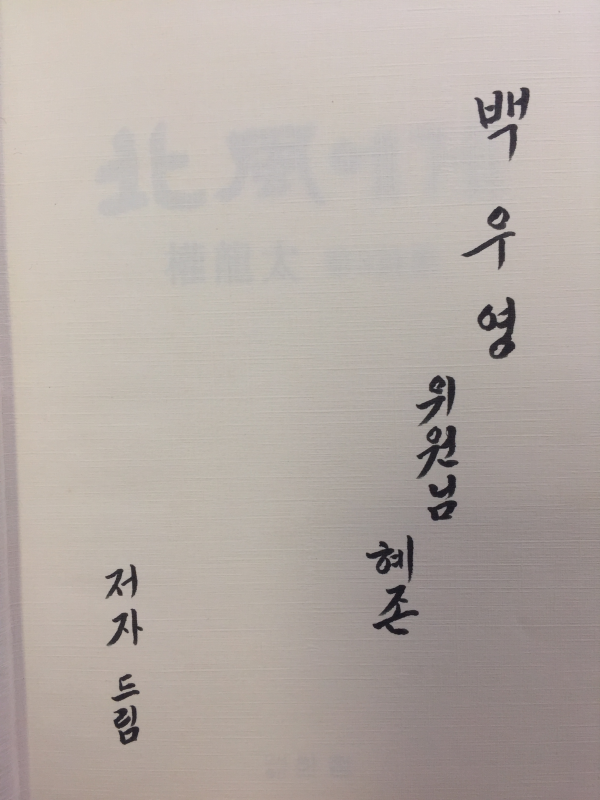 백우영
위원님
혜존
저자 드림
權龍太